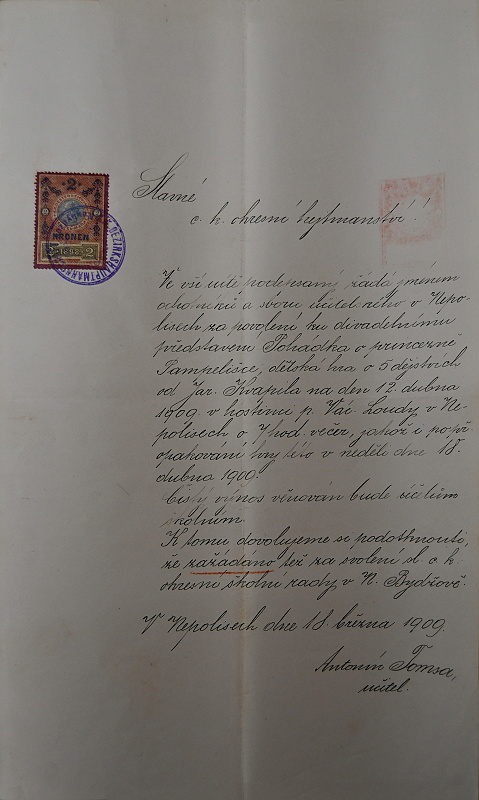 2
KRONEN
2 1898 2
BEZIRKSHAUPTMANNSCHAFT
Slavné
c. k. okresní hejtmanství!
V vší úctě podepsaný žádá jménem
ochotníků a sboru učitelského v Nepo-
lisech za povolení ku divadelnímu
představení Pohádka o princezně
Pampelišce, dětská hra o 5 dějstvích
od Jar. Kvapila na den 12. dubna
1909. v hostinci p. Vác. Loudy v Ne-
polisech o 7 hod. večer, jakož i popř.
opakování hry této v neděli dne 18.
dubna 1909.
Čistý výnos věnován bude účelům
školním.
K tomu dovolujeme si podotknouti,
že zažádáno též za svolení sl. c. k.
okresní školní rady v N. Bydžově.
V Nepolisech dne 18. března 1909.
Antonín Tomsa,
učitel.